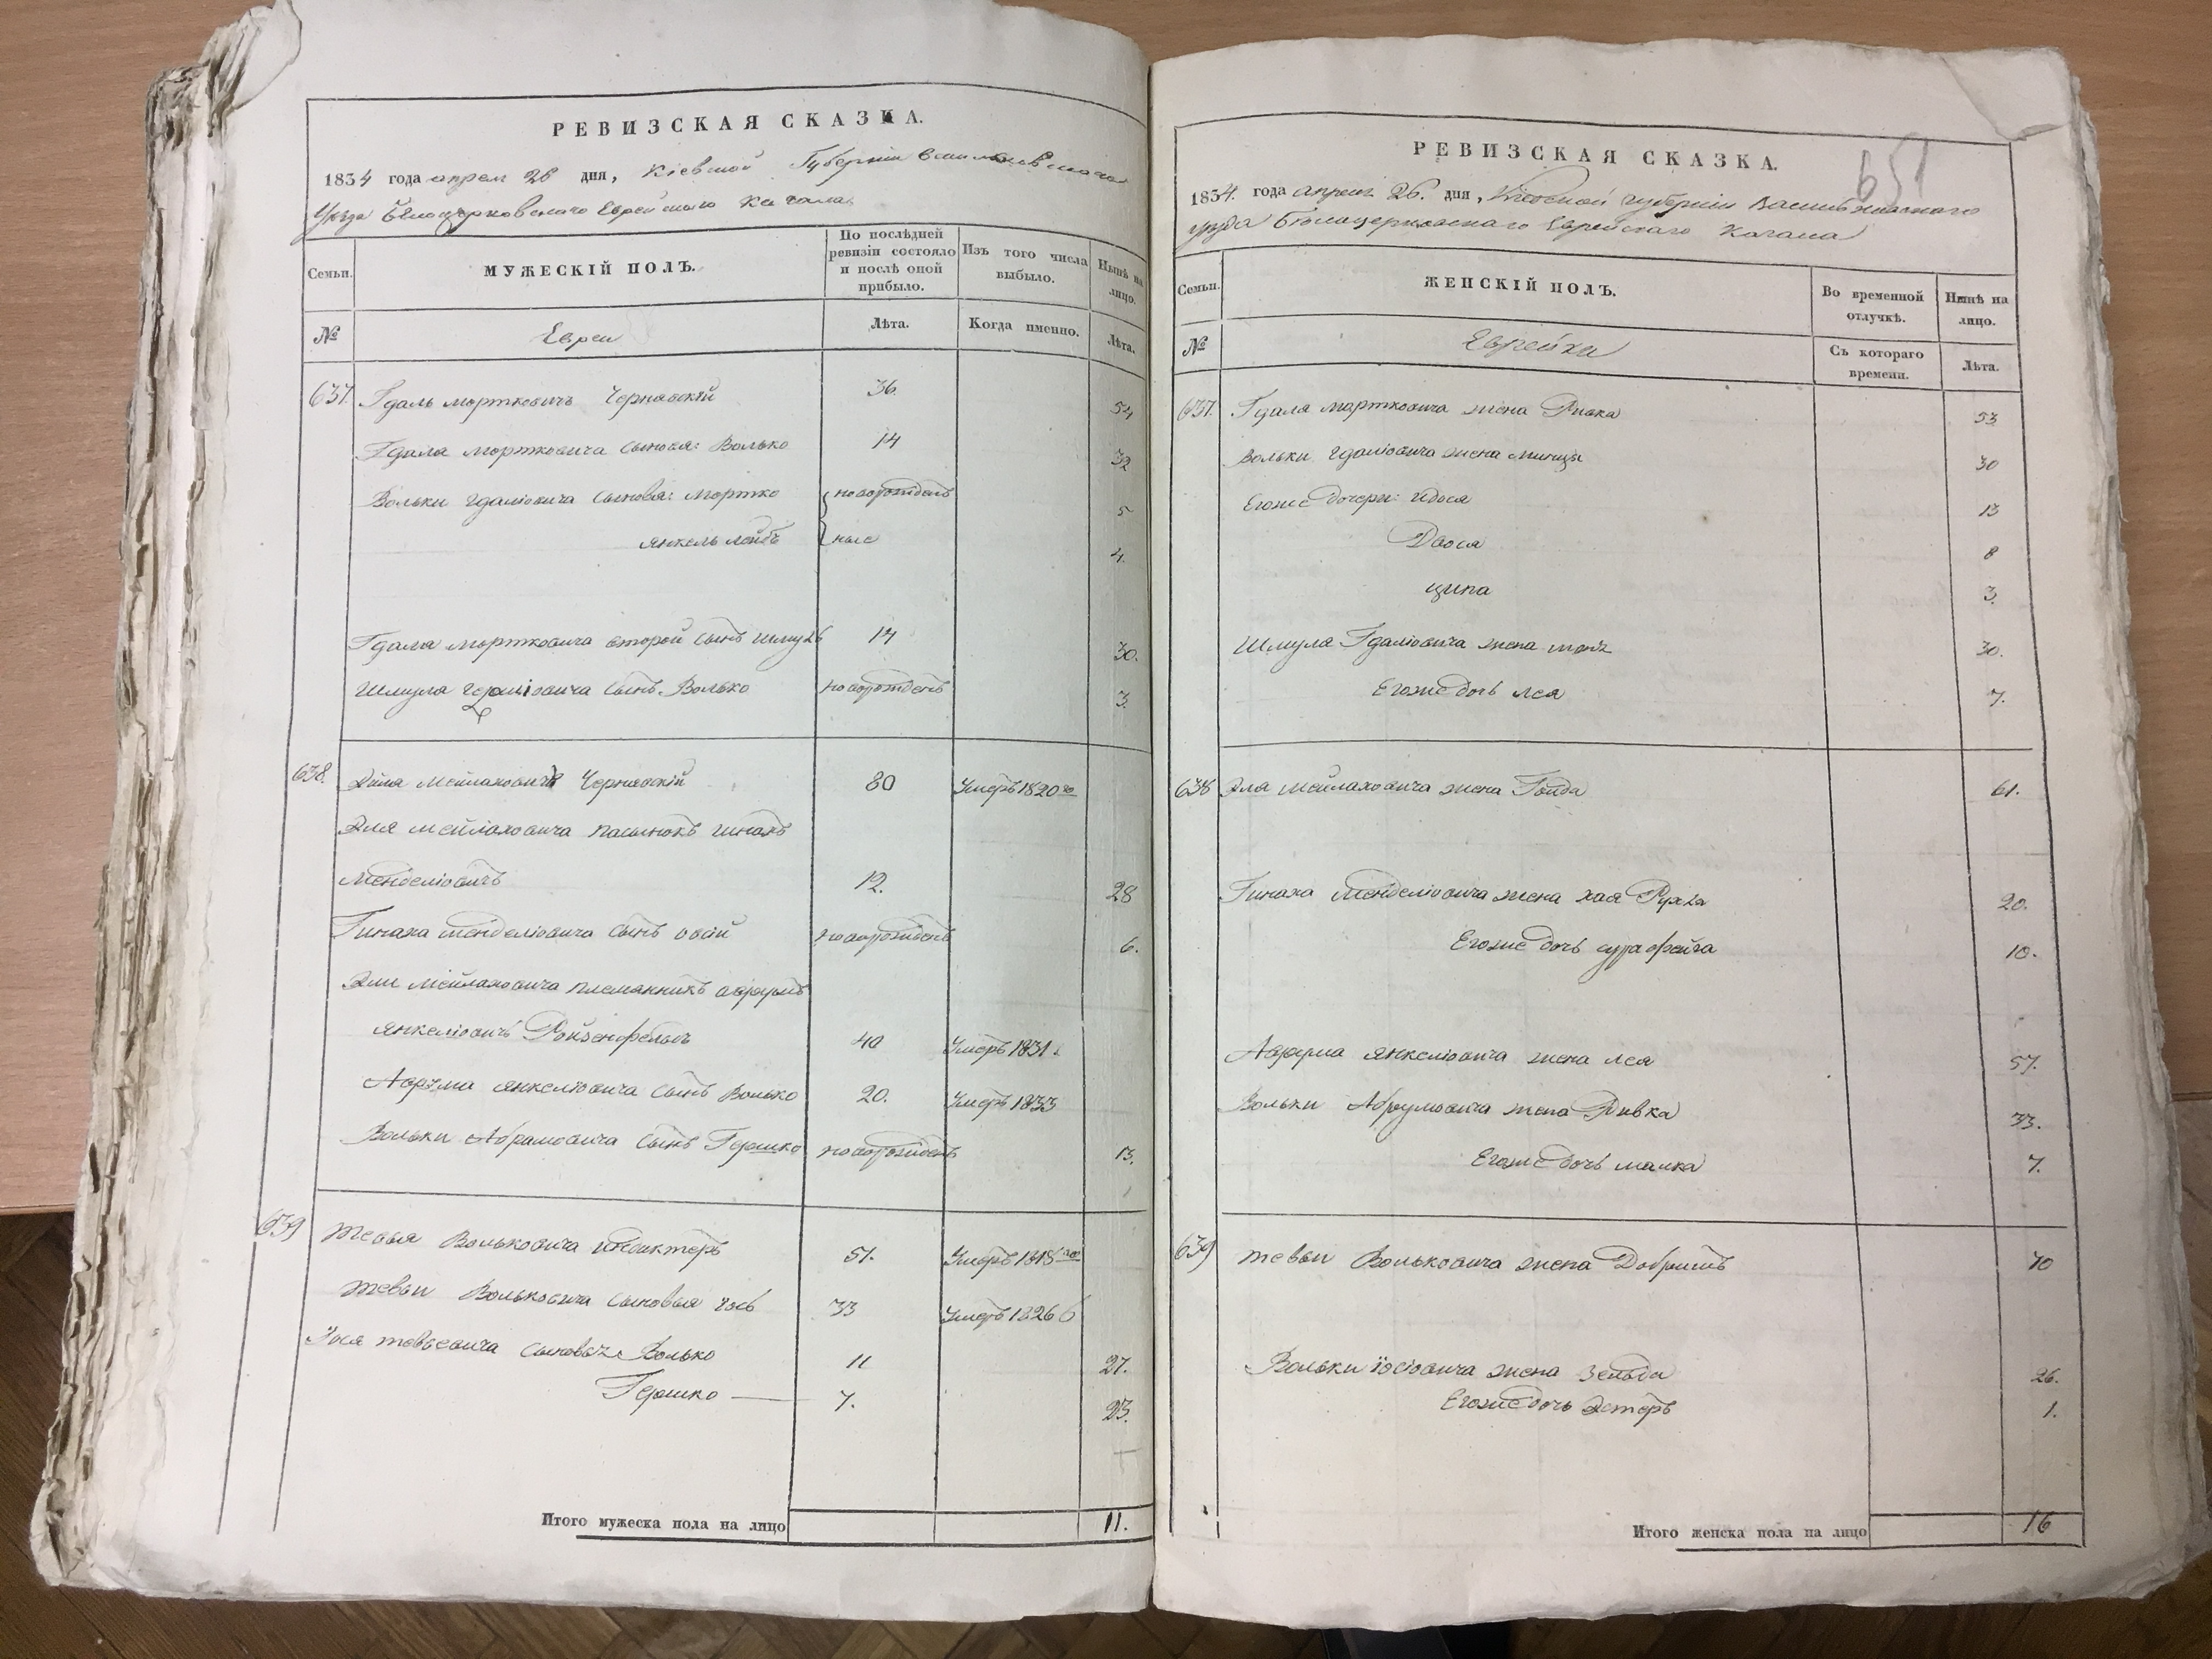 РЕВИЗСКАЯ СКАЗКА.
1834 года апрел 26 дня, Кіевской Губерніи Васильковскаго
уезда Белоцерковскаго Еврейскаго Кагала
Семьи.
МУЖЕСКІЙ ПОЛЪ.
По послѣдней ревизіи состояло и послѣ оной прибыло.
Изъ того числа выбыло.
Нынѣ на лицо.
№
Евреи
Лѣта.
Когда именно.
Лѣта.
637. Гдаль мортковичъ Чернявскій 36. 54
Гдаля мортковича сыновья: Волько 14 32
Вольки гдаліовича сыновья: Мортко новорожден 5
янкель лейбъ ные 4.
Гдаля мортковича второй сынъ шмуль 14 30.
Шмуля гдаліовича сынъ Волько новорожденъ 3.
638. Эйля мейлаховичъ Чернявскій 80 Умеръ 1820го
Эля мейлаховича пасынокъ
Менделіовичъ 12. 28
Гинаха менделіовича сынъ овсій новорожденъ 6.
Эли мейлаховича племянникъ аврумъ
янкеліовичъ Ройзенфельдъ 40 Умеръ 1831.
Аврума янкеліовича сынъ Волько 20. Умеръ 1833
Вольки Абрамовича сынъ Гершко новорожденъ 13.
639 тевья Вольковича 51. Умеръ 1818го
тевьи Вольковича сыновья іось 33 Умеръ 1826
Іося тевьевича сыновья Волько 11 27.
Гершко — 7. 23.
Итого мужеска пола на лицо 11.
651
РЕВИЗСКАЯ СКАЗКА.
1834. года апреля 26. дня, Кіевской губерніи Васильковскаго
уезда Бѣлоцерковскаго Еврейскаго Кагала
Семьи.
ЖЕНСКІЙ ПОЛЪ.
Во временной отлучкѣ.
Нынѣ на лицо.
№
Еврейки
Съ котораго времени.
Лѣта.
637. Гдаля мортковича жена Ривка 53
Вольки гдаліовича жена минця 30
Егоже дочери: идося 13
Двося 8
ципа 3.
Шмуля Гдаліовича жена 30.
Егоже дочь лея 7.
638 Эля мейлаховича жена Гонда 61.
Гинаха менделіовича жена хая Рухля 20.
Егоже дочь сура фейга 10.
Аврума янкеліовича жена лея 57.
Вольки Абрумовича жена Ривка 33.
Егоже дочь малка 7.
639 тевьи Вольковича жена Добришъ 70
Вольки іосіовича жена Зельда 26.
Егоже дочь Эстеръ 1.
Итого женска пола на лицо 16